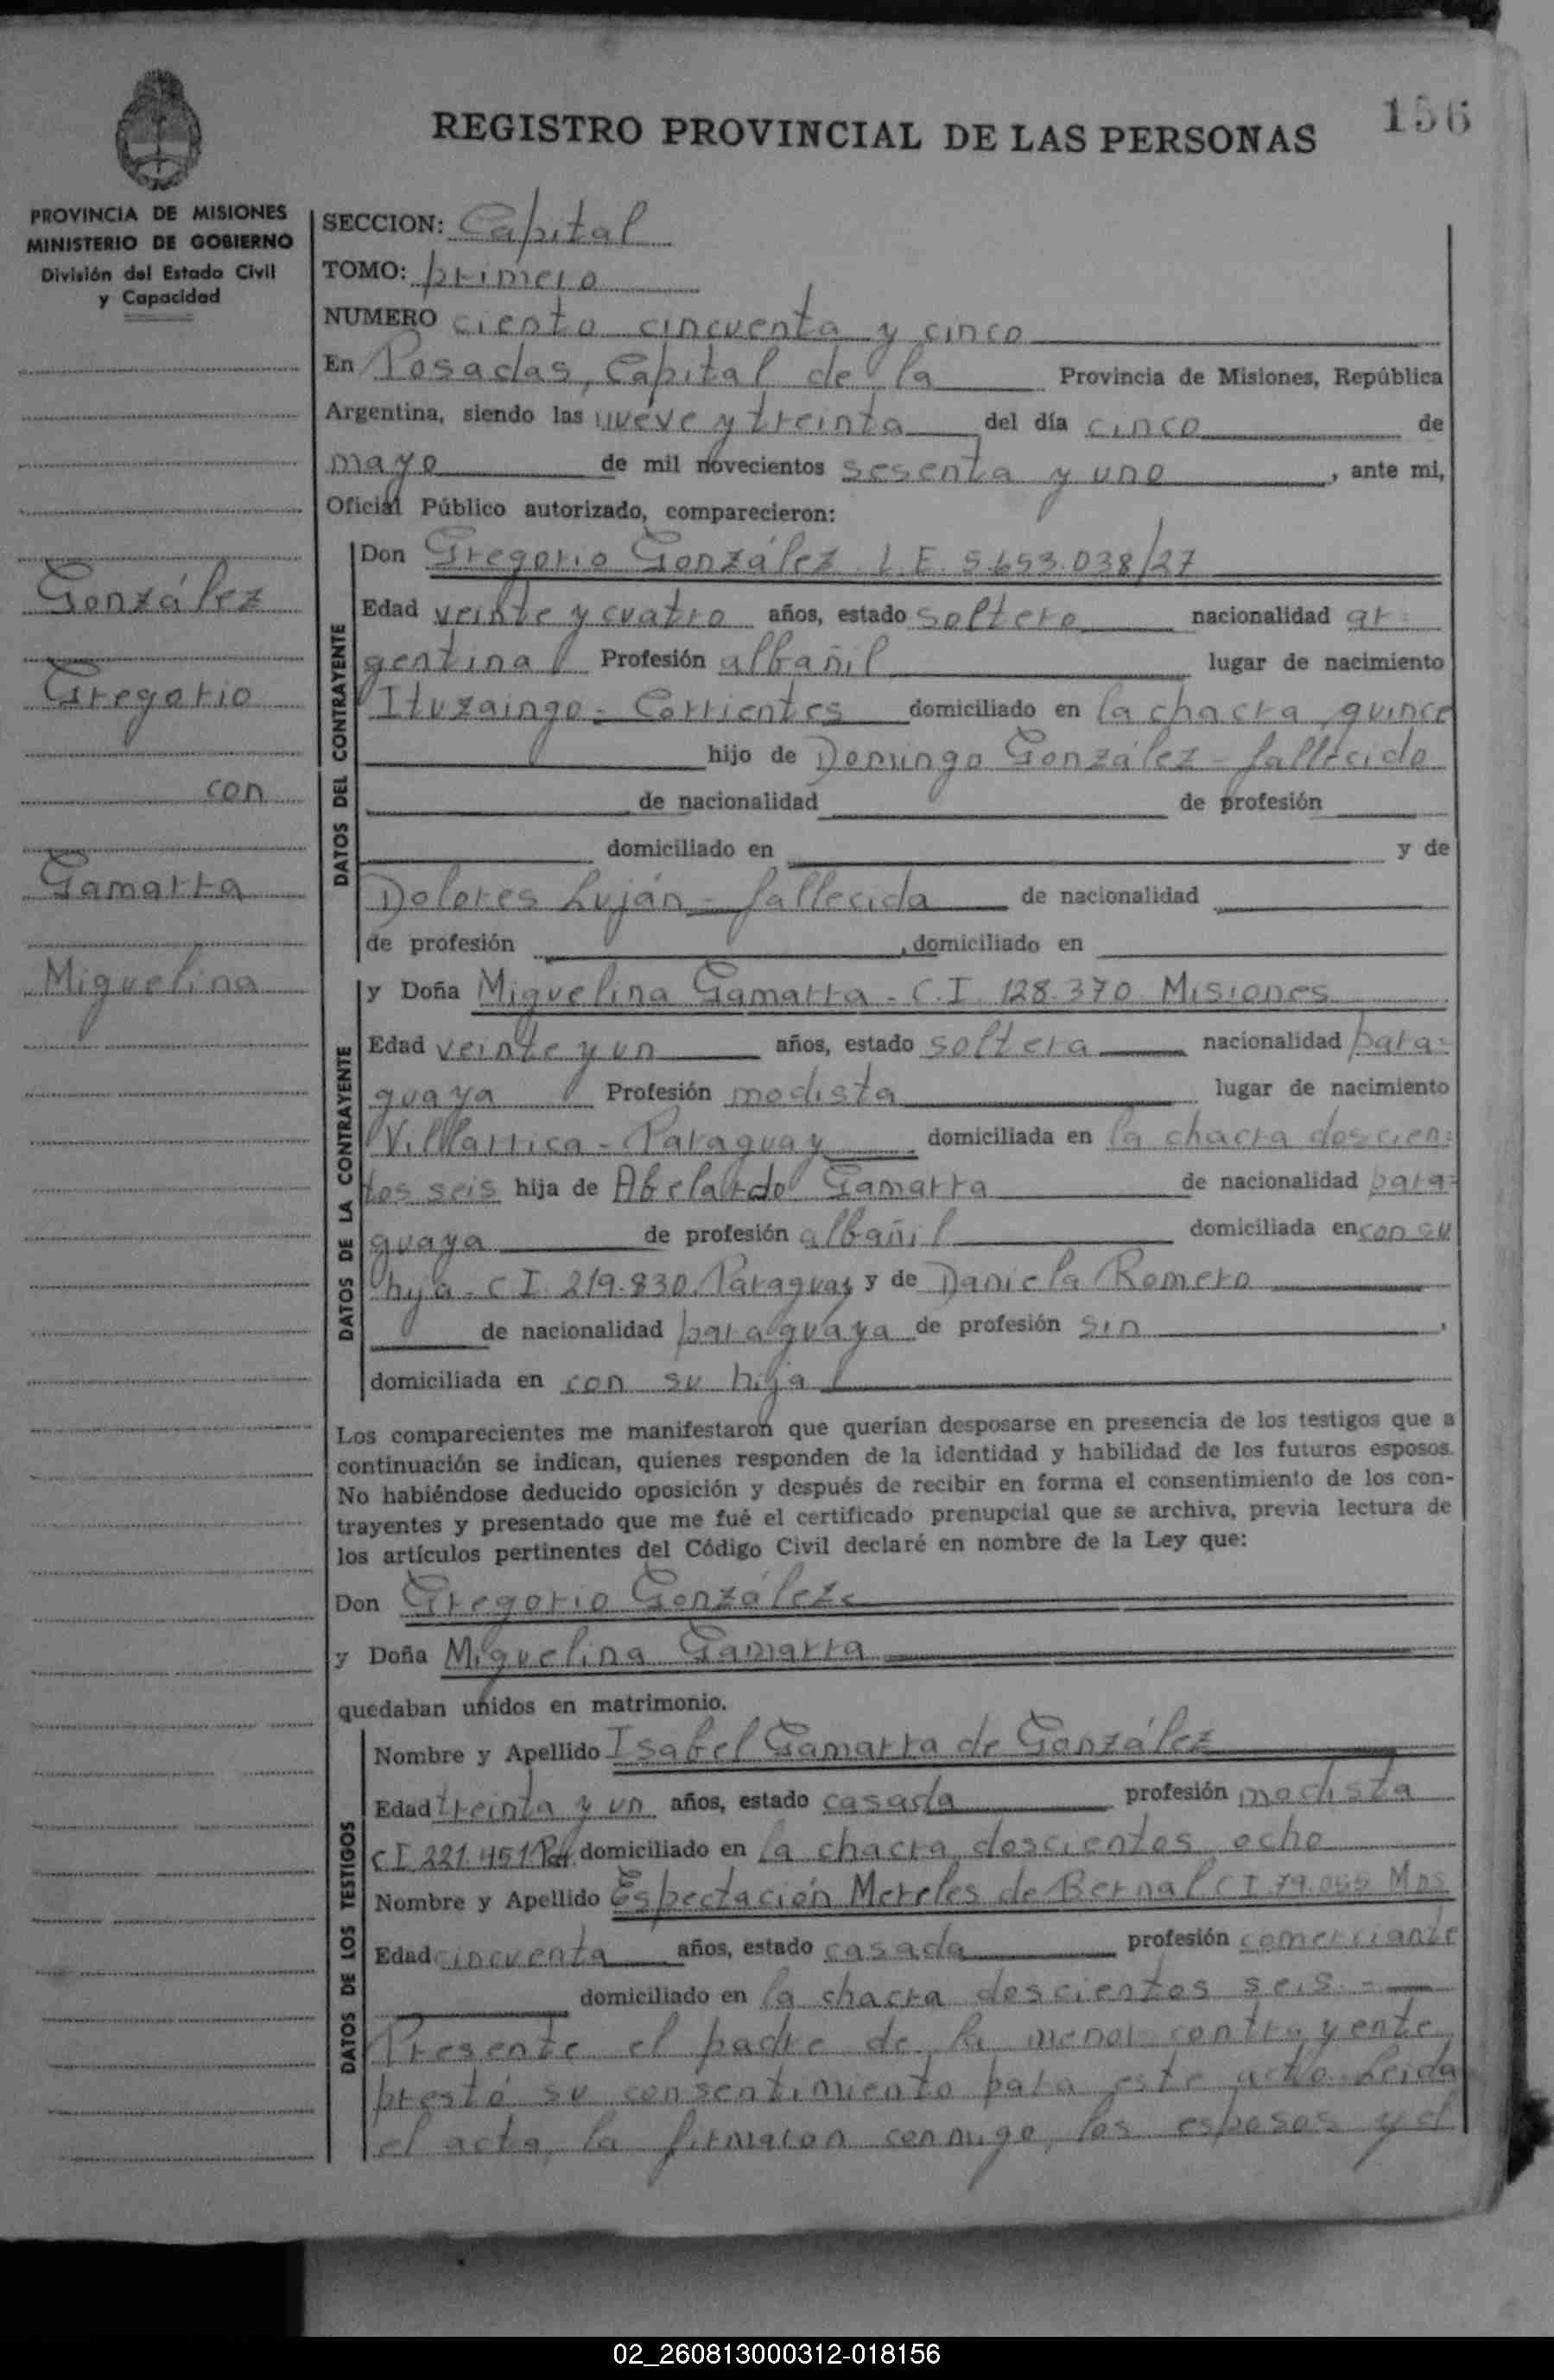 156
REGISTRO PROVINCIAL DE LAS PERSONAS
PROVINCIA DE MISIONES
MINISTERIO DE GOBIERNO
División del Estado Civil
y Capacidad
González
Gregorio
con
Gamarra
Miguelina
SECCION: Capital
TOMO: primero
NUMERO ciento cincuenta y cinco
En Posadas, Capital de la Provincia de Misiones, República
Argentina, siendo las nueve y treinta del día cinco de
mayo de mil novecientos sesenta y uno, ante mi,
Oficial Público autorizado, comparecieron:
DATOS DEL CONTRAYENTE
Don Gregorio González L.E. 5.653.038/27
Edad veinte y cuatro años, estado soltero nacionalidad ar-
gentina Profesión albañil lugar de nacimiento
Ituzaingo - Corrientes domiciliado en la chacra quince
hijo de Domingo González - fallecido
de nacionalidad de profesión
domiciliado en y de
Dolores Luján - fallecida de nacionalidad
de profesión , domiciliado en
DATOS DE LA CONTRAYENTE
y Doña Miguelina Gamarra - C.I. 128.370 Misiones
Edad veinte y un años, estado soltera nacionalidad para-
guaya Profesión modista lugar de nacimiento
Villarrica - Paraguay domiciliada en la chacra doscien-
tos seis hija de Abelardo Gamarra de nacionalidad para-
guaya de profesión albañil domiciliada en con su
hija - C I. 219.830. Paraguay y de Daniela Romero
de nacionalidad paraguaya de profesión sin ,
domiciliada en con su hija
Los comparecientes me manifestaron que querían desposarse en presencia de los testigos que a
continuación se indican, quienes responden de la identidad y habilidad de los futuros esposos.
No habiéndose deducido oposición y después de recibir en forma el consentimiento de los con-
trayentes y presentado que me fué el certificado prenupcial que se archiva, previa lectura de
los artículos pertinentes del Código Civil declaré en nombre de la Ley que:
Don Gregorio González
y Doña Miguelina Gamarra
quedaban unidos en matrimonio.
DATOS DE LOS TESTIGOS
Nombre y Apellido Isabel Gamarra de González
Edad treinta y un años, estado casada profesión modista
C I. 221.451 domiciliado en la chacra doscientos ocho
Nombre y Apellido Espectación Mereles de Bernal C I. Mns
Edad cincuenta años, estado casada profesión comerciante
domiciliado en la chacra doscientos seis.-
Presente el padre de la menor contrayente
prestó su consentimiento para este acto. Leida
el acta, la firmaron conmigo, los esposos y el
02_260813000312-018156